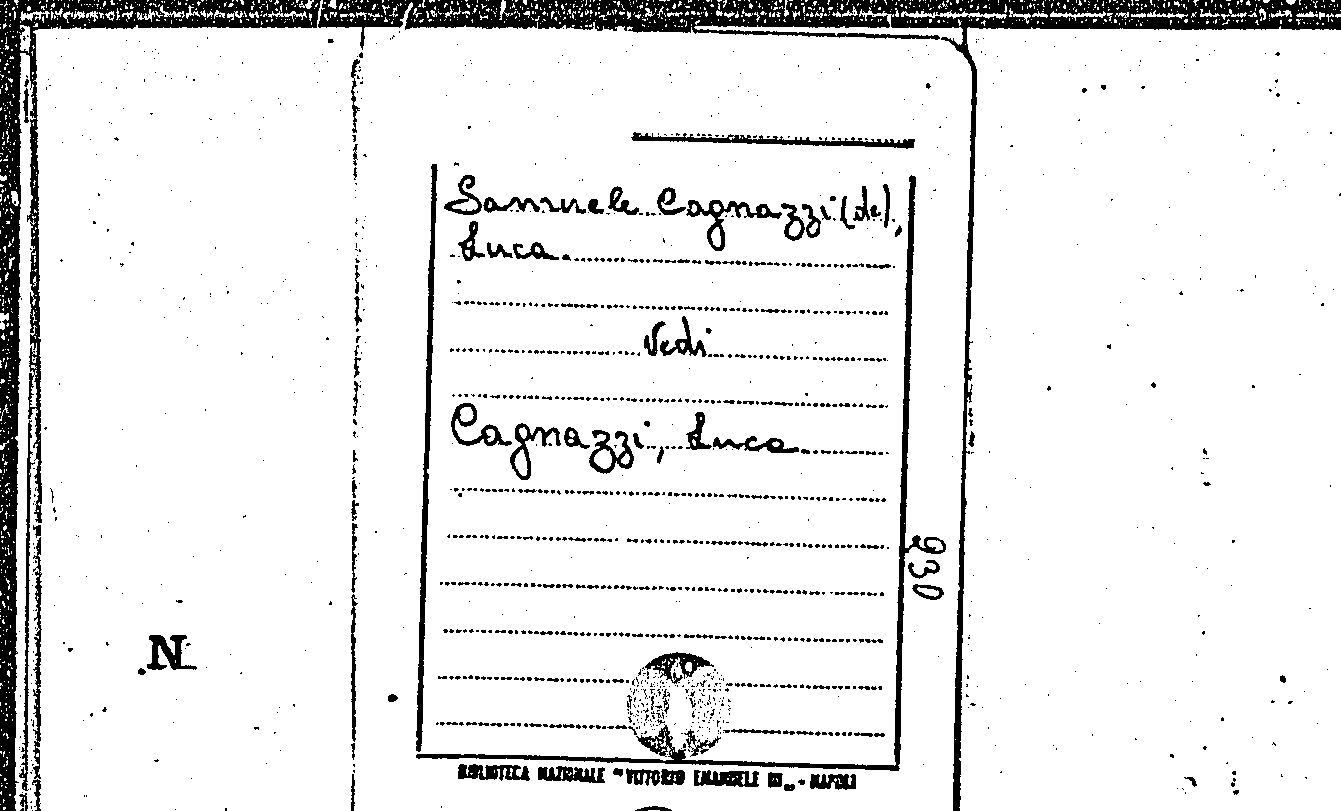 Samuele Cagnazzi (de),
Luca.
Vedi
Cagnazzi, Luca
930
N
BIBLIOTECA NAZIONALE "VITTORIO EMANUELE III„ - NAPOLI